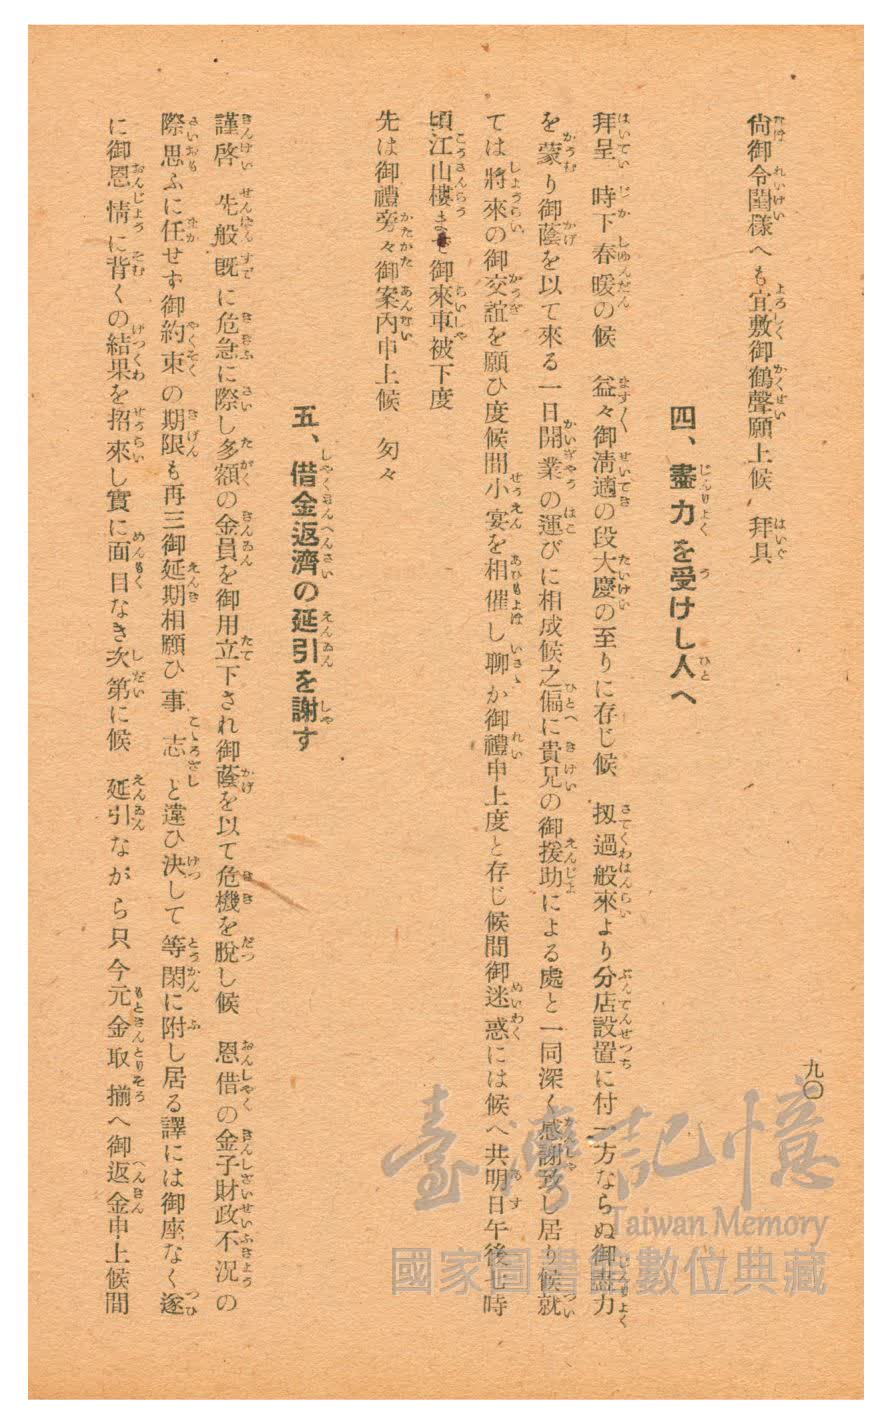 九〇
尙御令閨樣へも宜敷御鶴聲願上候　拜具
四、盡力を受けし人へ
拜呈　時下春暖の候　益々御淸適の段大慶の至りに存じ候　扨過般來より分店設置に付一方ならぬ御盡力
を蒙り御蔭を以て來る一日開業の運びに相成候之偏に貴兄の御援助による處と一同深く感謝致し居り候就
ては將來の御交誼を願ひ度候間小宴を相催し聊か御禮申上度と存じ候間御迷惑には候へ共明日午後七時
頃江山樓まで御來車被下度
先は御禮旁々御案內申上候　匆々
五、借金返濟の延引を謝す
謹啓　先般旣に危急に際し多額の金員を御用立下され御蔭を以て危機を脫し候　恩借の金子財政不況の
際思ふに任せず御約束の期限も再三御延期相願ひ事志と違ひ決して等閑に附し居る譯には御座なく遂
に御恩情に背くの結果を招來し實に面目なき次第に候　延引ながら只今元金取揃へ御返金申上候間
臺灣記憶
Taiwan Memory
國家圖書館數位典藏